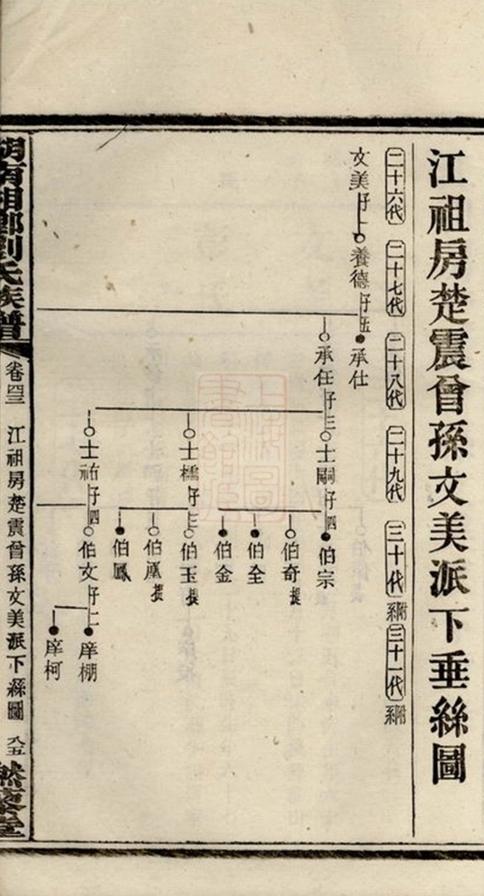 江祖房楚震曾孫文美派下垂絲圖
二十六代 二十七代 二十八代 二十九代 三十代 附系 三十一代 附系
文美 好一 養德 好五 承仕
承任 好三 士嗣 好四 伯宗
伯奇
伯全
伯金
士檽 好三 伯玉
伯鳳
士祐 好四 伯文 好二 庠棚
庠柯
湖南湘鄉劉氏族譜
江祖房楚震曾孫文美派下絲圖 八五